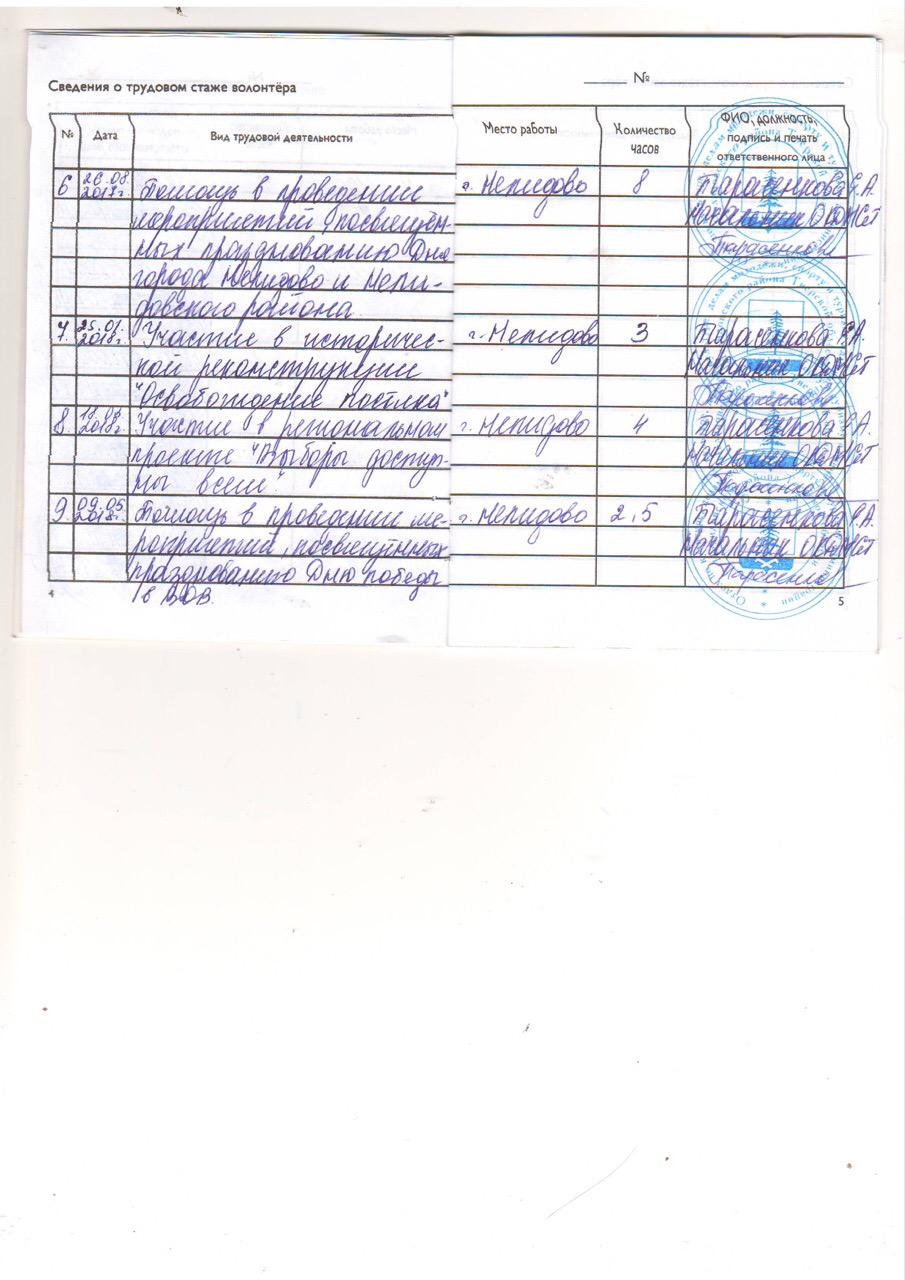 №
Сведения о трудовом стаже волонтёра
№ Дата Вид трудовой деятельности Место работы Количество часов ФИО, должность, подпись и печать ответственного лица
6 26.08. 2017г. Помощь в проведении г. Нелидово 8 Тарасенкова Е.А.
мероприятий, посвящён- Начальник
ных празднованию Дня Тарасенкова
города Нелидово и Нели-
довского района.
7. 25.01. 2018г. Участие в историчес- г. Нелидово 3 Тарасенкова Е.А.
кой реконструкции Начальник
"Освобождение поселка" Тарасенкова
8. 18.03. 2018г. Участие в региональном г. Нелидово 4 Тарасенкова Е.А.
проекте "Выборы доступ- Начальник
ны всем." Тарасенкова
9. 09.05. 2018г. Помощь в проведении ме- г. Нелидово 2,5 Тарасенкова Е.А.
роприятий, посвящённых Начальник
празднованию Дню победы
в ВОВ.
4 5